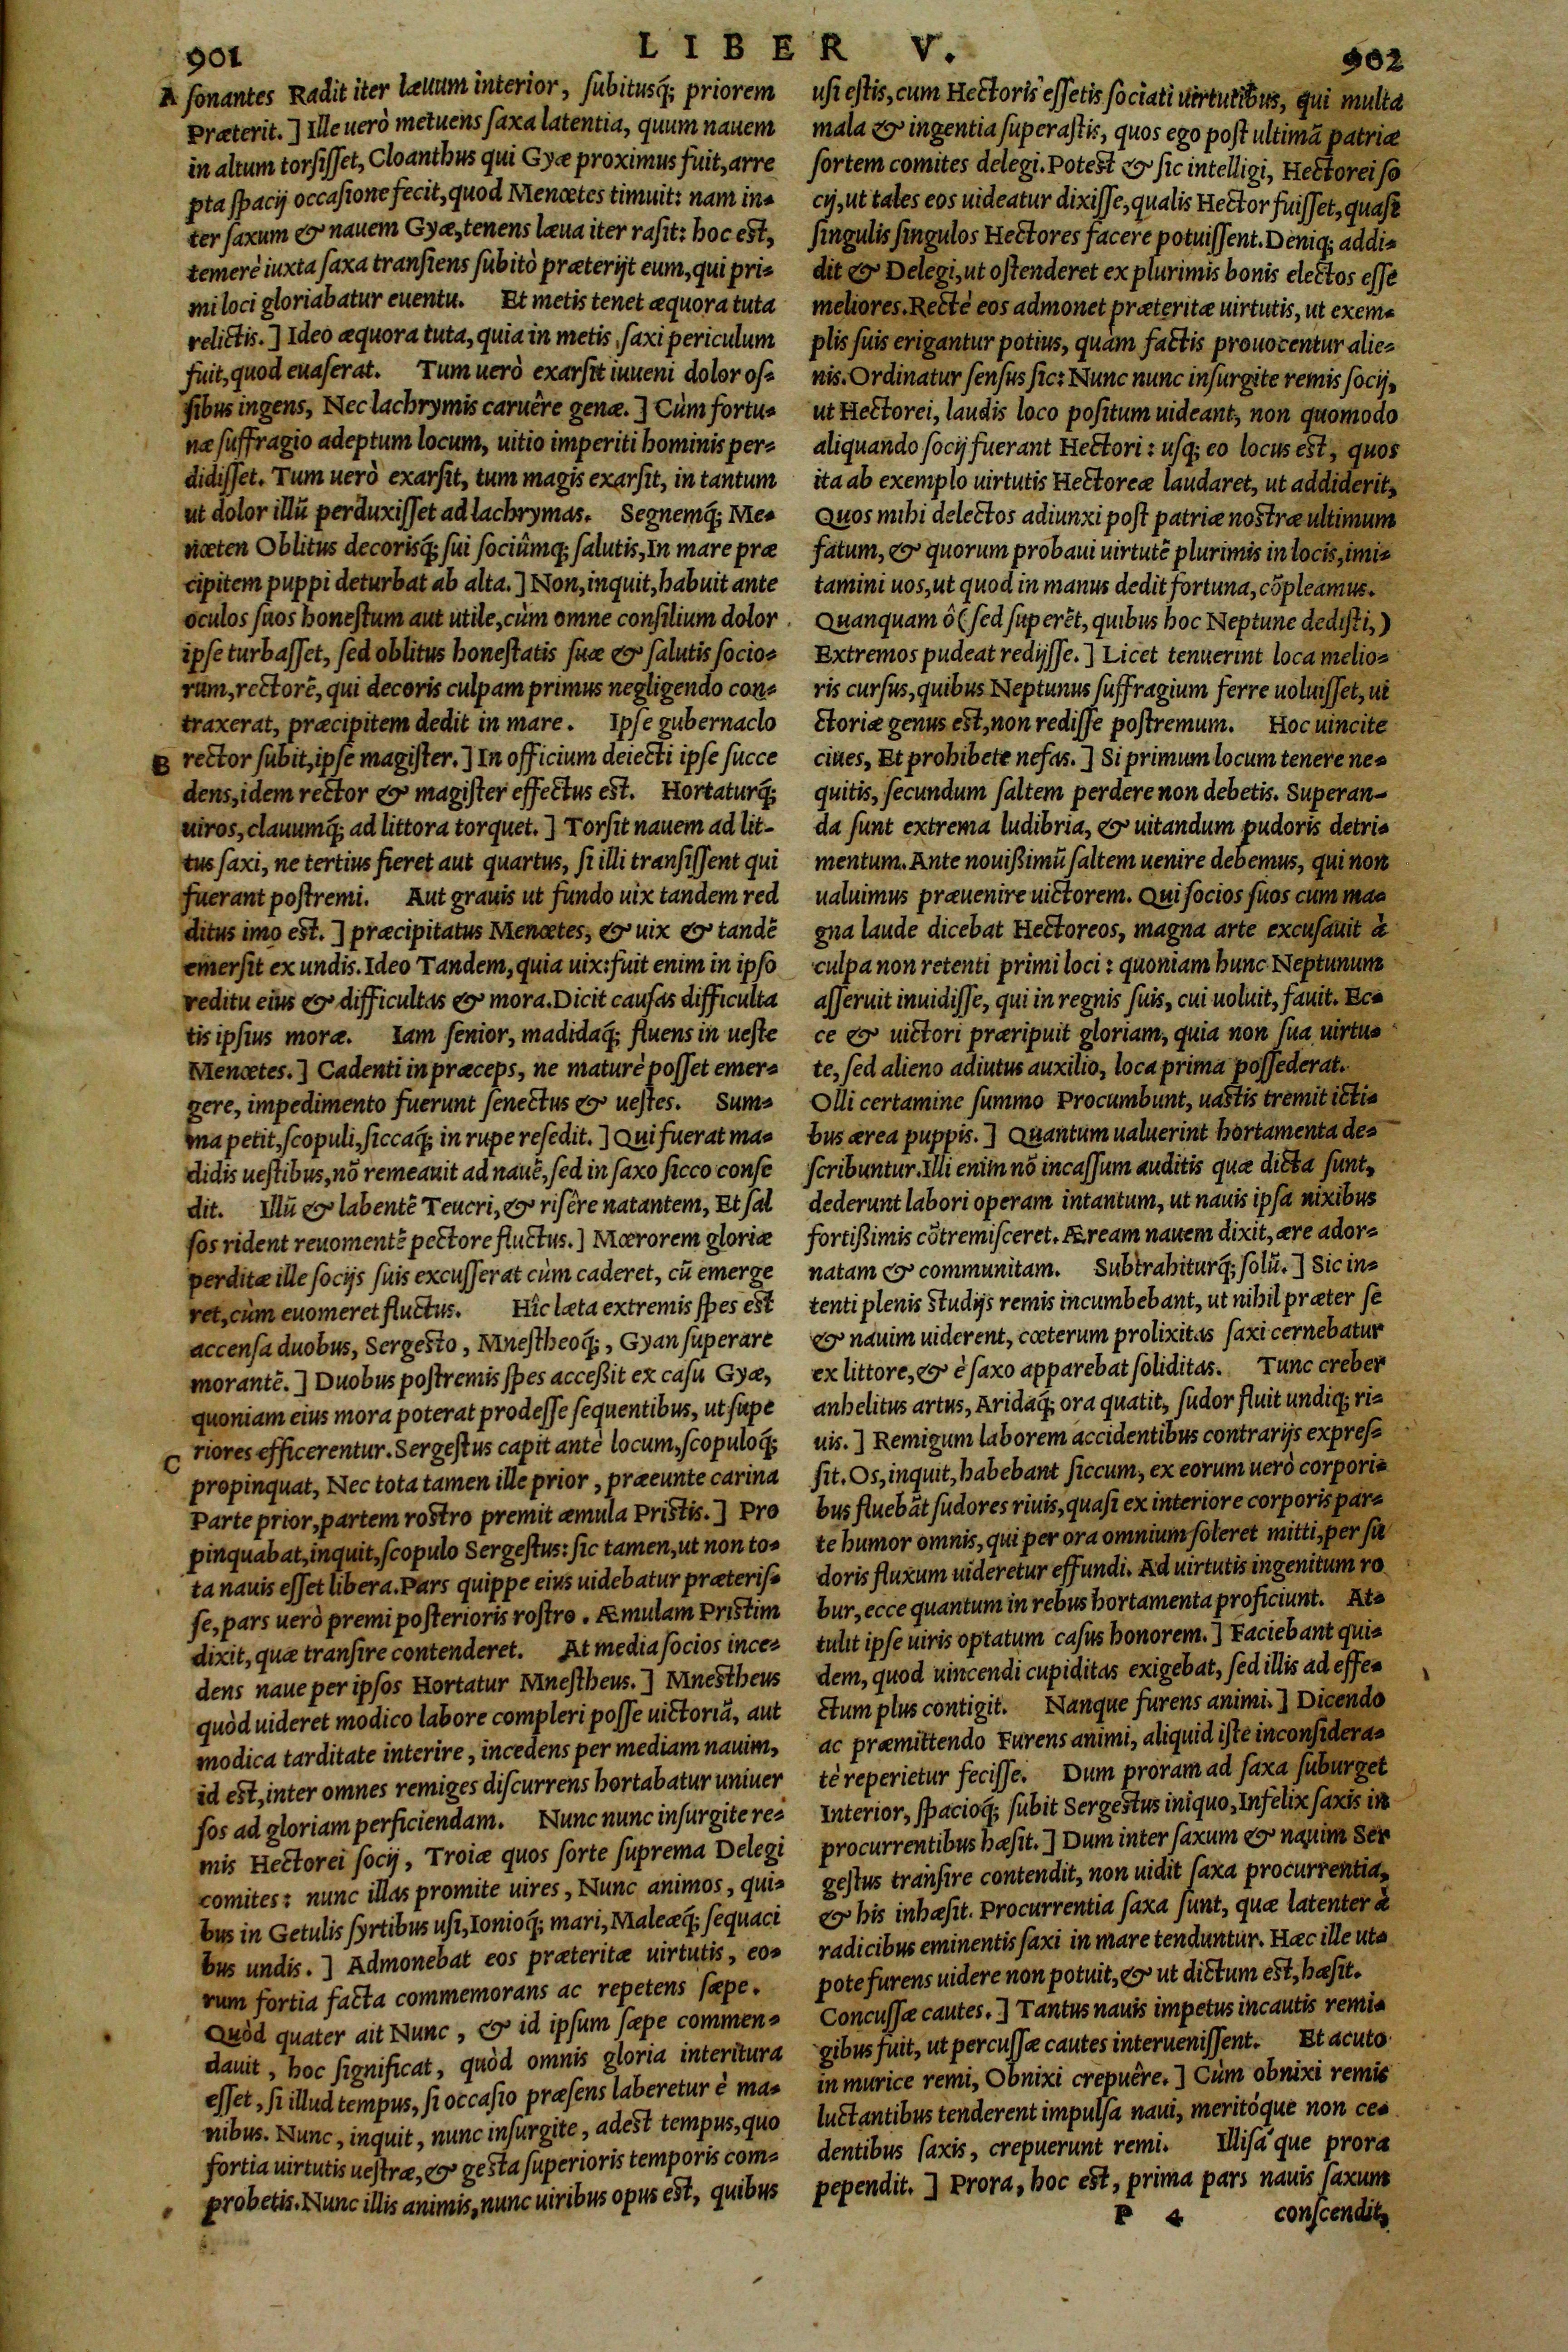 901
LIBER V.
902
A sonantes Radit iter læuum interior, subitusq́; priorem
Præterit. ] Ille uerò metuens saxa latentia, quum nauem
in altum torsisset, Cloanthus qui Gyæ proximus fuit, arre
pta spacij occasione fecit, quod Menœtes timuit: nam in-
ter saxum & nauem Gyæ, tenens læua iter rasit: hoc est,
temerè iuxta saxa transiens subitò præterijt eum, qui pri-
mi loci gloriabatur euentu. Et metis tenet æquora tuta
relictis. ] Ideo æquora tuta, quia in metis saxi periculum
fuit, quod euaserat. Tum uerò exarsit iuueni dolor os-
sibus ingens, Nec lachrymis caruêre genæ. ] Cùm fortu-
næ suffragio adeptum locum, uitio imperiti hominis per-
didisset. Tum uerò exarsit, tum magis exarsit, in tantum
ut dolor illũ perduxisset ad lachrymas. Segnemq́; Me-
nœten Oblitus decorisq́; sui sociûmq; salutis, In mare præ
cipitem puppi deturbat ab alta. ] Non, inquit, habuit ante
oculos suos honestum aut utile, cùm omne consilium dolor
ipse turbasset, sed oblitus honestatis suæ & salutis socio-
rum, rectorẽ, qui decoris culpam primus negligendo con-
traxerat, præcipitem dedit in mare. Ipse gubernaclo
B rector subit, ipse magister. ] In officium deiecti ipse succe
dens, idem rector & magister effectus est. Hortaturq́;
uiros, clauumq́; ad littora torquet. ] Torsit nauem ad lit-
tus saxi, ne tertius fieret aut quartus, si illi transissent qui
fuerant postremi. Aut grauis ut fundo uix tandem red
ditus imo est. ] præcipitatus Menœtes, & uix & tandẽ
emersit ex undis. Ideo Tandem, quia uix: fuit enim in ipso
reditu eius & difficultas & mora. Dicit causas difficulta
tis ipsius moræ. Iam senior, madidaq́; fluens in ueste
Menœtes. ] Cadenti in præceps, ne maturè posset emer-
gere, impedimento fuerunt senectus & uestes. Sum-
ma petit, scopuli, siccaq́; in rupe resedit. ] Qui fuerat ma-
didis uestibus, nõ remeauit ad nauẽ, sed in saxo sicco conse
dit. Illũ & labentẽ Teucri, & risêre natantem, Et sal
sos rident reuomentẽ pectore fluctus. ] Mœrorem gloriæ
perditæ ille socijs suis excusserat cùm caderet, cũ emerge
ret, cùm euomeret fluctus. Hîc læta extremis spes est
accensa duobus, Sergesto, Mnestheoq́;, Gyan superare
morantẽ. ] Duobus postremis spes accessit ex casu Gyæ,
quoniam eius mora poterat prodesse sequentibus, ut supe
C riores efficerentur. Sergestus capit antè locum, scopuloq́;
propinquat, Nec tota tamen ille prior, præeunte carina
Parte prior, partem rostro premit æmula Pristis. ] Pro
pinquabat, inquit, scopulo Sergestus: sic tamen, ut non to-
ta nauis esset libera. Pars quippe eius uidebatur præteris-
se, pars uerò premi posterioris rostro. Æmulam Pristim
dixit, quæ transire contenderet. At media socios ince-
dens naue per ipsos Hortatur Mnestheus. ] Mnestheus
quòd uideret modico labore compleri posse uictoriã, aut
modica tarditate interire, incedens per mediam nauim,
id est, inter omnes remiges discurrens hortabatur uniuer
sos ad gloriam perficiendam. Nunc nunc insurgite re-
mis Hectorei socij, Troiæ quos sorte suprema Delegi
comites: nunc illas promite uires, Nunc animos, qui-
bus in Getulis syrtibus usi, Ionioq́; mari, Maleæq́; sequaci
bus undis. ] Admonebat eos præteritæ uirtutis, eo-
rum fortia facta commemorans ac repetens sæpe.
Quòd quater ait Nunc, & id ipsum sæpe commen-
dauit, hoc significat, quòd omnis gloria interitura
esset, si illud tempus, si occasio præsens laberetur è ma-
nibus. Nunc, inquit, nunc insurgite, adest tempus, quo
fortia uirtutis uestræ, & gesta superioris temporis com-
probetis. Nunc illis animis, nunc uiribus opus est, quibus
usi estis, cum Hectoris essetis sociati uirtutibus, qui multa
mala & ingentia superastis, quos ego post ultimã patriæ
sortem comites delegi. Potest & sic intelligi, Hectorei so
cij, ut tales eos uideatur dixisse, qualis Hector fuisset, quasi
singulis singulos Hectores facere potuissent. Deniq; addi-
dit & Delegi, ut ostenderet ex plurimis bonis electos esse
meliores. Rectè eos admonet præteritæ uirtutis, ut exem-
plis suis erigantur potius, quàm factis prouocentur alie-
nis. Ordinatur sensus sic: Nunc nunc insurgite remis socij,
ut Hectorei, laudis loco positum uideant, non quomodo
aliquando socij fuerant Hectori: usq; eo locus est, quos
ita ab exemplo uirtutis Hectoreæ laudaret, ut addiderit,
Quos mihi delectos adiunxi post patriæ nostræ ultimum
fatum, & quorum probaui uirtutẽ plurimis in locis, imi-
tamini uos, ut quod in manus dedit fortuna, cõpleamus.
Quanquam ô (sed superẽt, quibus hoc Neptune dedisti,)
Extremos pudeat redijsse. ] Licet tenuerint loca melio-
ris cursus, quibus Neptunus suffragium ferre uoluisset, ui
ctoriæ genus est, non redisse postremum. Hoc uincite
ciues, Et prohibete nefas. ] Si primum locum tenere ne-
quitis, secundum saltem perdere non debetis. Superan-
da sunt extrema ludibria, & uitandum pudoris detri-
mentum. Ante nouissimũ saltem uenire debemus, qui non
ualuimus præuenire uictorem. Qui socios suos cum ma-
gna laude dicebat Hectoreos, magna arte excusauit à
culpa non retenti primi loci: quoniam hunc Neptunum
asseruit inuidisse, qui in regnis suis, cui uoluit, fauit. Ec-
ce & uictori præripuit gloriam, quia non sua uirtu-
te, sed alieno adiutus auxilio, loca prima possederat.
Olli certamine summo Procumbunt, uastis tremit icti-
bus ærea puppis. ] Quantum ualuerint hortamenta de-
scribuntur. Illi enim nõ incassum auditis quæ dicta sunt,
dederunt labori operam intantum, ut nauis ipsa nixibus
fortissimis cõtremisceret. Æream nauem dixit, ære ador-
natam & communitam. Subtrahiturq́; solũ. ] Sic in-
tenti plenis studijs remis incumbebant, ut nihil præter se
& nauim uiderent, cœterum prolixitas saxi cernebatur
ex littore, & è saxo apparebat soliditas. Tunc creber
anhelitus artus, Aridaq́; ora quatit, sudor fluit undiq; ri-
uis. ] Remigum laborem accidentibus contrarijs expres-
sit. Os, inquit, habebant siccum, ex eorum uerò corpori-
bus fluebãt sudores riuis, quasi ex interiore corporis par-
te humor omnis, qui per ora omnium soleret mitti, per su
doris fluxum uideretur effundi. Ad uirtutis ingenitum ro
bur, ecce quantum in rebus hortamenta proficiunt. At-
tulit ipse uiris optatum casus honorem. ] Faciebant qui-
dem, quod uincendi cupiditas exigebat, sed illis ad effe-
ctum plus contigit. Nanque furens animi. ] Dicendo
ac præmittendo Furens animi, aliquid iste inconsidera-
tè reperietur fecisse. Dum proram ad saxa suburget
Interior, spacioq́; subit Sergestus iniquo, Infelix saxis in
procurrentibus hæsit. ] Dum inter saxum & nauim Ser
gestus transire contendit, non uidit saxa procurrentia,
& his inhæsit. Procurrentia saxa sunt, quæ latenter à
radicibus eminentis saxi in mare tenduntur. Hæc ille ut-
pote furens uidere non potuit, & ut dictum est, hæsit.
Concussæ cautes. ] Tantus nauis impetus incautis remi-
gibus fuit, ut percussæ cautes interuenissent. Et acuto
in murice remi, Obnixi crepuêre. ] Cùm obnixi remis
luctantibus tenderent impulsa naui, meritóque non ce-
dentibus saxis, crepuerunt remi. Illisáque prora
pependit. ] Prora, hoc est, prima pars nauis saxum
P 4 conscendit,